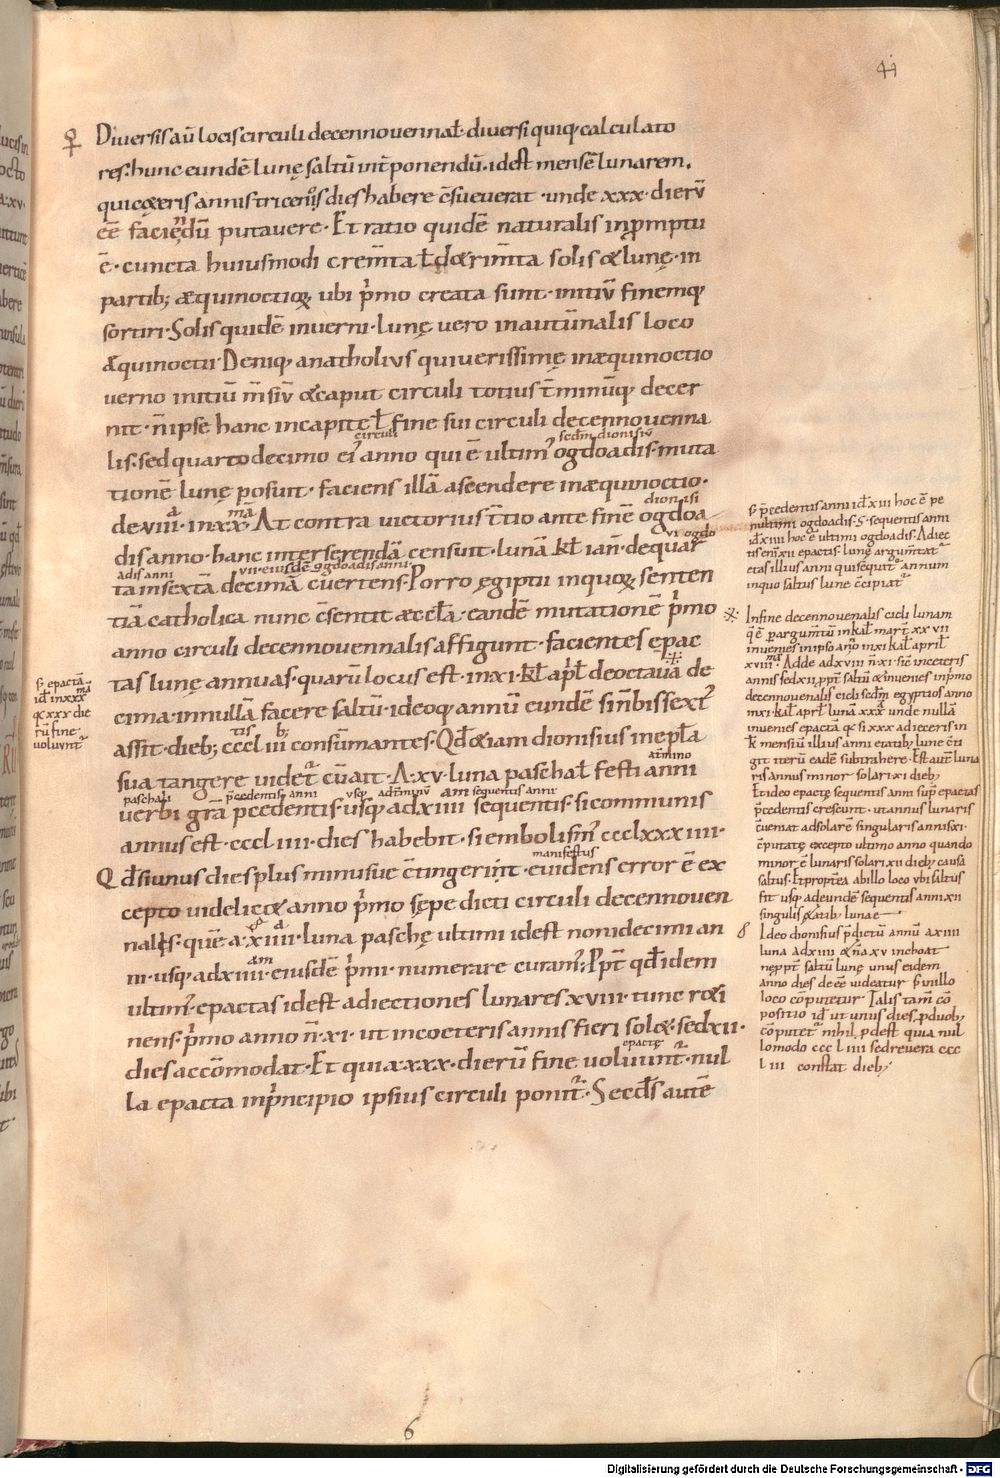 44
Diuersis aū locis circuli decennouennaƚ· diuersi quiq; calculato
res: hunc eundē lunę saltū int̄ponendū· id est mensē lunarem·
qui cęteris annis tricenis dies habere c̄sueuerat · unde xxx· dierū
eē faciędū putauere· Et ratio quidē naturalis inp̄mptu
ē· cuncta huiusmodi crem̄ta ƚ d&rim̄ta solis & lunę· in
partib; æquinoctioꝝ ubi p̄mo creata sunt· initiū finemq;
sortiri· Solis quidē in uerni· lunę uero in autūnalis loco
æquinoctii· Deniq; anatholius qui uerissimę in æquinoctio
uerno initiū m̄siū & caput circuli totius t̄minūq; decer
nit· n̄ ipse hanc in capite ƚ fine sui circuli decennouenna
circuli secđm dionisiū
lis· sed quartodecimo ei' anno qui ē ultim' ogdoadis· muta
tionē lunę posuit· faciens illā ascendere in æquinoctio·
a mā dionisi
de uiii· in xx· At contra uictorius t̄tio ante finē ogdoa
ui ogdo
dis anno· hanc interserendā censuit· lunā kƚ ian̄· de quar
adis anni uii· eiusdē ogdoadis anni·
ta in sextā decimā cuertens· Porro ęgiptii in quoꝝ senten
tiā catholica nunc c̄sentit æccƚa· eandē mutationē p̄mo
anno circuli decennouenalis affigunt· facientes epac
tas lunę annuas· quarū locus est· in xi· kƚ apƚ· de octaua de
cima· in nullā facere saltū· ideoq; annū eundē si n̄ bissext'
tis b;
assit· dieb; cccl iii consūmantes· Qđ &iam dionisius in epƚa
at̄mino
sua tangere uidet' cū ait· A·xv·luna paschaƚ festi anni
paschali p̄cedentis anni usq; adt̄minū am̄ sequentis anni
uerbi gr̄a p̄cedentis· usq; ad xiiii sequentis· si communis
annus est· cccl iiii· dies habebit· si embolism' ccclxxxiiii·
manifestus
Qđ si unus dies plus minusue c̄tingerit· euidens error ē ex
cepto uidelic& anno p̄mo sępe dicti circuli decennouen
a
nalis· quē a·xiiii·luna paschę ultimi id est nonidecimi an
am
ni· usq; ad xiiii· eiusdē p̄mi· numerare curam'; P̄pt' qđ idem
ultim' epactas id est adiectiones lunares xviii· tunc r&i
nens· p̄mo anno n̄·xi· ut in cæteris annis fieri sol&· sed xii·
dies accōmodat· Et quia·xxx·dierū fine uoluunt'· nul
epactę
la epacta in p̄ncipio ipsius circuli ponit'· Secđs autē
s· epactā
iđ in xxx mā
& xxx die
rū fine
uoluunt'
s· p̄cedentis anni iđ xiii hoc ē pe
nultimi ogdoadis· S· sequentis anni
iđ xiiii hoc ē ultimi ogdoadis· Adiec
tis eni xii epactis lunę argum̄tat'
etas illius anni qui sequit' annum
in quo saltus lunę c̄cipiat'
In fine decennouenalis cicli lunam
q̄ ē p argum̄tū in kaƚ mart̄ xxvii
inuenies in ipso anō in xi kaƚ apriƚ
xviii· mā Adde ad xviii n̄ xi sic̄ in ceteris
annis sed xii ppt̄ saltū & inuenies in p̄mo
decennouenalis cicli secđm egyptios anno
in xi kaƚ apriƚ lunā xxx unde nullā
inuenies epactā & si xxx adieceris in
kƚ mensiū illius anni etatib; lunę c̄ti
git iterū eadē subtrahere· Est aut̄ luna
ris annus minor solari xi dieb;
Et ideo epactę sequentis anni sup̄ epactas
p̄cedentis crescunt· ut annus lunaris
c̄ueniat ad solarē singularis annis xi·
c̄putatę excepto ultimo anno quando
minor ē lunaris solari xii dieb; causa
saltus· Et pptea ab illo loco ubi saltus
fit usq; ad eundē sequentis anni xii
singulis &atib; lunae
Ideo dionisius p̄dictū annū a xiiii
luna ad xiiii & n̄ a xv inchoat
ne ppt̄ saltū lunę unus eidem
anno dies deeē uideatur s· in illo
loco cōputetur Talis tam̄ cō
positio iđ ut unus dies p duob;
cōputet' nihil pdest quia nul
lo modo ccc l iiii sed reuera ccc
l iii constat dieb;
6
Digitalisierung gefördert durch die Deutsche Forschungsgemeinschaft - DFG